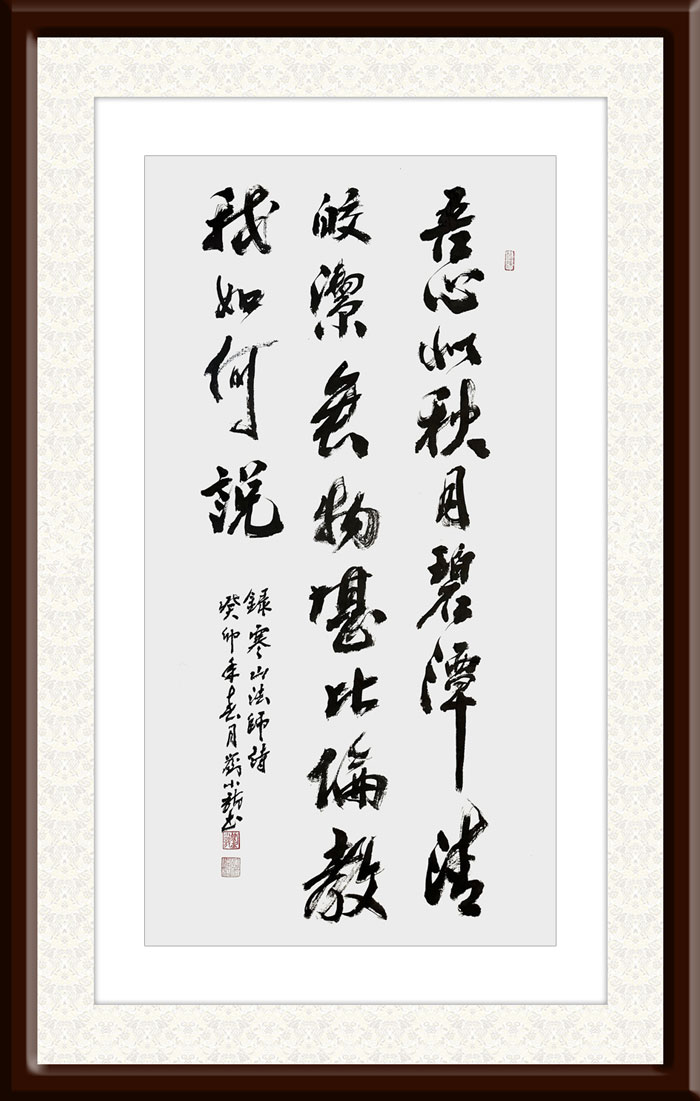 吾心似秋月碧潭清
皎潔無物堪比倫教
我如何說
錄寒山法師詩
癸卯年春月劉小龍書